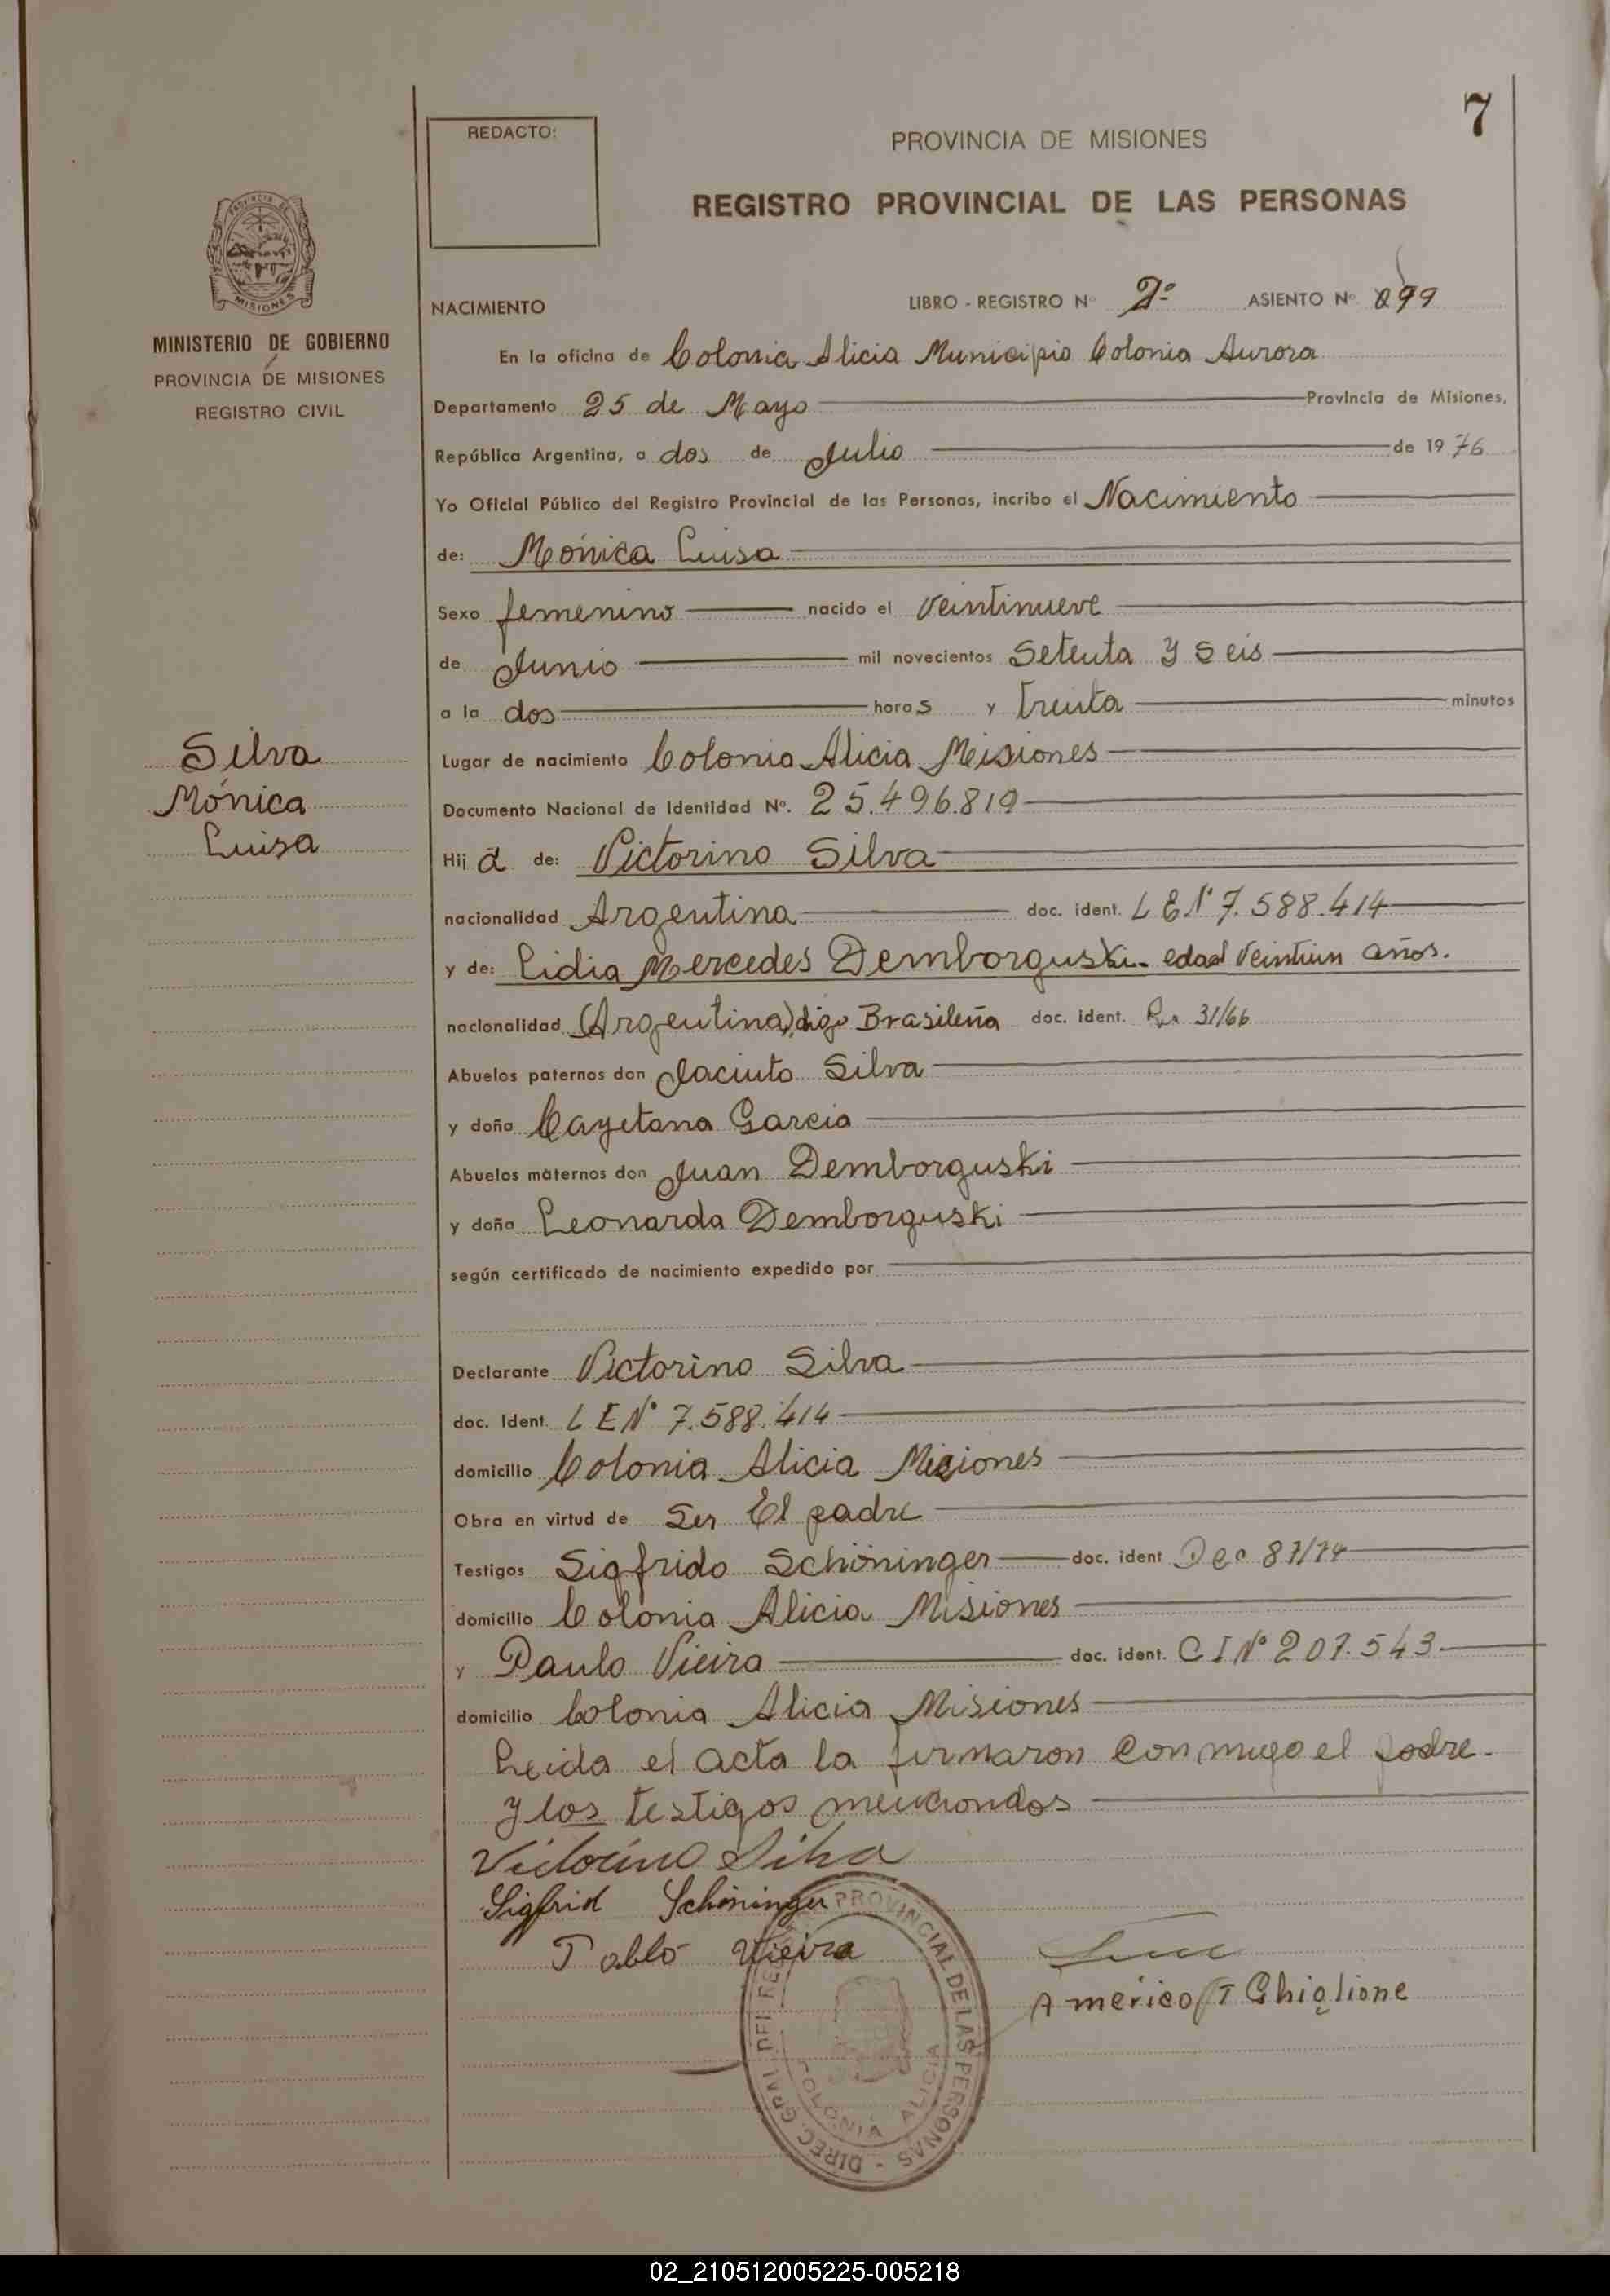 7
REDACTO:
PROVINCIA DE MISIONES
REGISTRO PROVINCIAL DE LAS PERSONAS
PROVINCIA DE
MISIONES
MINISTERIO DE GOBIERNO
PROVINCIA DE MISIONES
REGISTRO CIVIL
NACIMIENTO LIBRO - REGISTRO Nº 2º ASIENTO Nº 099
En la oficina de Colonia Alicia Municipio Colonia Aurora
Departamento 25 de Mayo Provincia de Misiones,
República Argentina, a dos de Julio de 1976
Yo Oficial Público del Registro Provincial de las Personas, incribo el Nacimiento
de: Mónica Luisa
Sexo femenino nacido el Veintinueve
de Junio mil novecientos Setenta y Seis
a la dos horas y treinta minutos
Silva
Mónica
Luisa
Lugar de nacimiento Colonia Alicia Misiones
Documento Nacional de Identidad Nº. 25.496.819
Hija de: Victorino Silva
nacionalidad Argentina doc. ident. L E Nº 7.588.414
y de: Lidia Mercedes Demborguski - edad Veintiun años.
nacionalidad (Argentina) digo Brasileña doc. ident. 31/66
Abuelos paternos don Jacinto Silva
y doña Cayetana Garcia
Abuelos maternos don Juan Demborguski
y doña Leonarda Demborguski
según certificado de nacimiento expedido por
Declarante Victorino Silva
doc. Ident. L E Nº 7.588.414
domicilio Colonia Alicia Misiones
Obra en virtud de Ser El padre
Testigos Sigfrido Schöninger doc. ident Dec 87/74
domicilio Colonia Alicia Misiones
y Paulo Vieira doc. ident. C I Nº 207.543
domicilio Colonia Alicia Misiones
Leida el acta la firmaron conmigo el padre
y los testigos menciondos
Victorino Silva
Sigfrid Schöninger
Pablo Vieira
Américo T Ghiglione
DIREC. GRAL. DEL REG. PROVINCIAL DE LAS PERSONAS
COLONIA ALICIA
02_210512005225-005218